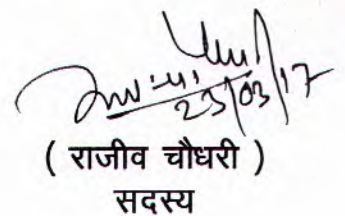 23/03/17
( राजीव चौधरी )
सदस्य